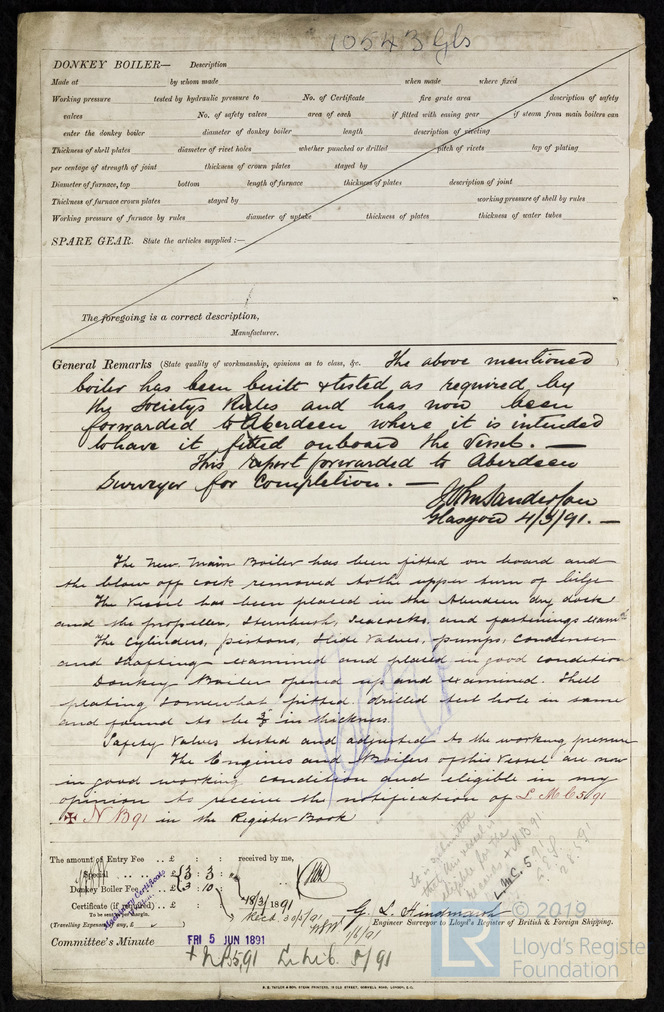 10543 Gls
DONKEY BOILER— Description
Made at by whom made when made where fixed
Working pressure tested by hydraulic pressure to No. of Certificate fire grate area description of safety
valves No. of safety valves area of each if fitted with easing gear if steam from main boilers can
enter the donkey boiler diameter of donkey boiler length description of riveting
Thickness of shell plates diameter of rivet holes whether punched or drilled pitch of rivets lap of plating
per centage of strength of joint thickness of crown plates stayed by
Diameter of furnace, top bottom length of furnace thickness of plates description of joint
Thickness of furnace crown plates stayed by working pressure of shell by rules
Working pressure of furnace by rules diameter of uptake thickness of plates thickness of water tubes
SPARE GEAR. State the articles supplied :—
The foregoing is a correct description,
Manufacturer.
General Remarks (State quality of workmanship, opinions as to class, &c. The above mentioned )
boiler has been built & tested as required by
the Societys Rules and has now been
forwarded to Aberdeen where it is intended
to have it fitted onboard the Vessel. —
This report forwarded to Aberdeen
Surveyor for completion. —
Jno Sanderson
Glasgow 4/3/91. —
The New Main Boiler has been fitted on board and
the blow off cock removed to the upper turn of bilge
The Vessel has been placed in the Aberdeen dry dock
and the propeller, Sternbush, Seacocks, and fastenings examd
The Cylinders, pistons, Slide Valves, pumps, Condenser
and Shafting examined and placed in good condition
Donkey Boiler opened up and examined. Shell
plating somewhat pitted, drilled test hole in same
and found to be in thickness.
Safety Valves tested and adjusted to the working pressure
The Engines and Boilers of this Vessel are now
in good working condition and eligible in my
opinion to receive the notification of L M C 5/91
✠ N B 91 in the Register Book
The amount of Entry Fee .. £ : : received by me,
Special .. .. £ 3 : 3 :
Donkey Boiler Fee .. £ 3 : 10 :
Certificate (if required) .. £ : : 18/3/1891
To be sent per margin.
(Travelling Expenses, if any, £ )
Machinery Certificate
Recd. 30/5/91
G. L. Hindmarsh
Engineer Surveyor to Lloyd's Register of British & Foreign Shipping.
It is submitted
that this vessel is
eligible for the
record + NB 91
LMC. 5.91
Committee's Minute FRI 5 JUN 1891
+ NB 5,91 L M C 5/91
© 2019
LR
Lloyd's Registe
Foundation